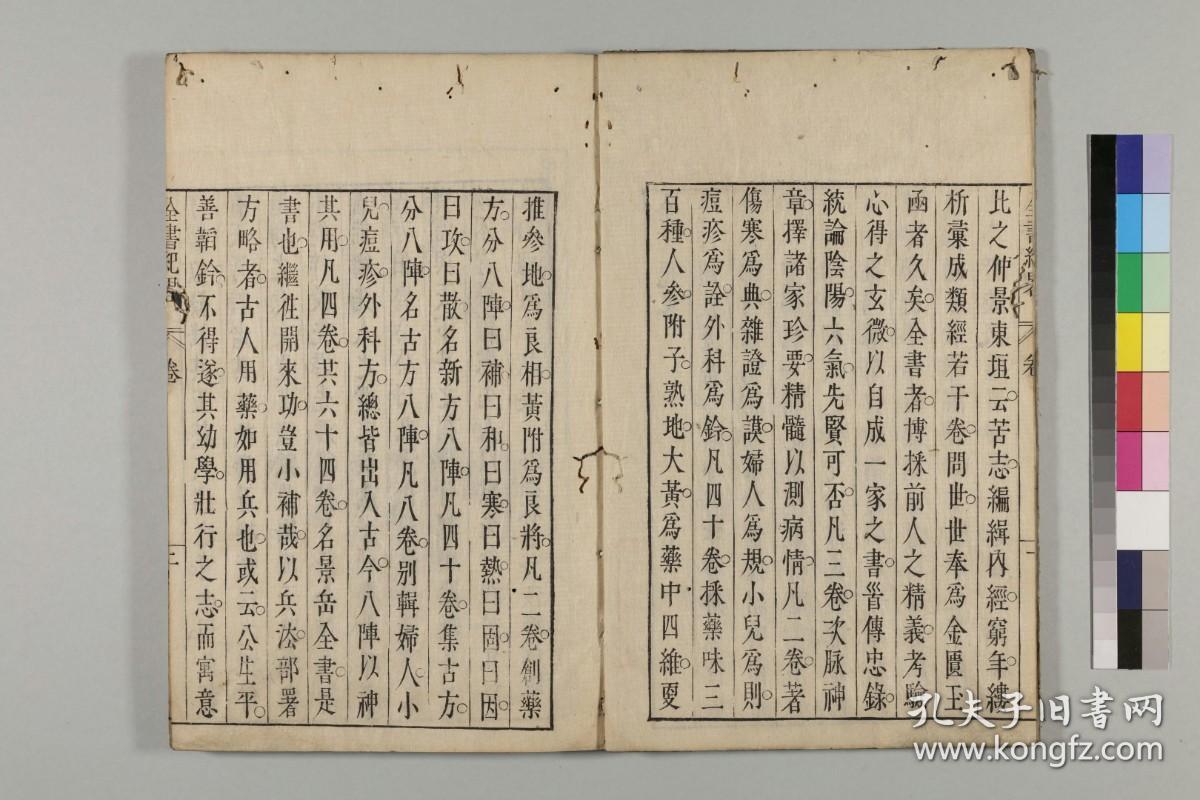 比之仲景東垣云苦志編緝內經窮年縷
析彙成類經若干卷問世世奉爲金匱玉
函者久矣全書者博採前人之精義考驗
心得之玄微以自成一家之書首傳忠錄
統論陰陽六氣先賢可否凡三卷次脉神
章擇諸家珍要精髓以測病情凡二卷著
傷寒爲典雜證爲謨婦人爲規小兒爲則
痘疹爲詮外科爲鈐凡四十卷採藥味三
百種人參附子熟地大黃爲藥中四維更
推參地爲良相黃附爲良將凡二卷創藥
方分八陣曰補曰和曰寒曰熱曰固曰因
曰攻曰散名新方八陣凡四十卷集古方
分八陣名古方八陣凡八卷别輯婦人小
兒痘疹外科方總皆出入古今八陣以神
其用凡四卷共六十四卷名景岳全書是
書也繼徃開來功豈小補哉以兵法部署
方略者古人用藥如用兵也或云公生平
善韜鈐不得遂其幼學壯行之志而寓意
全書紀畧
卷
二
孔夫子旧书网
www.kongfz.com